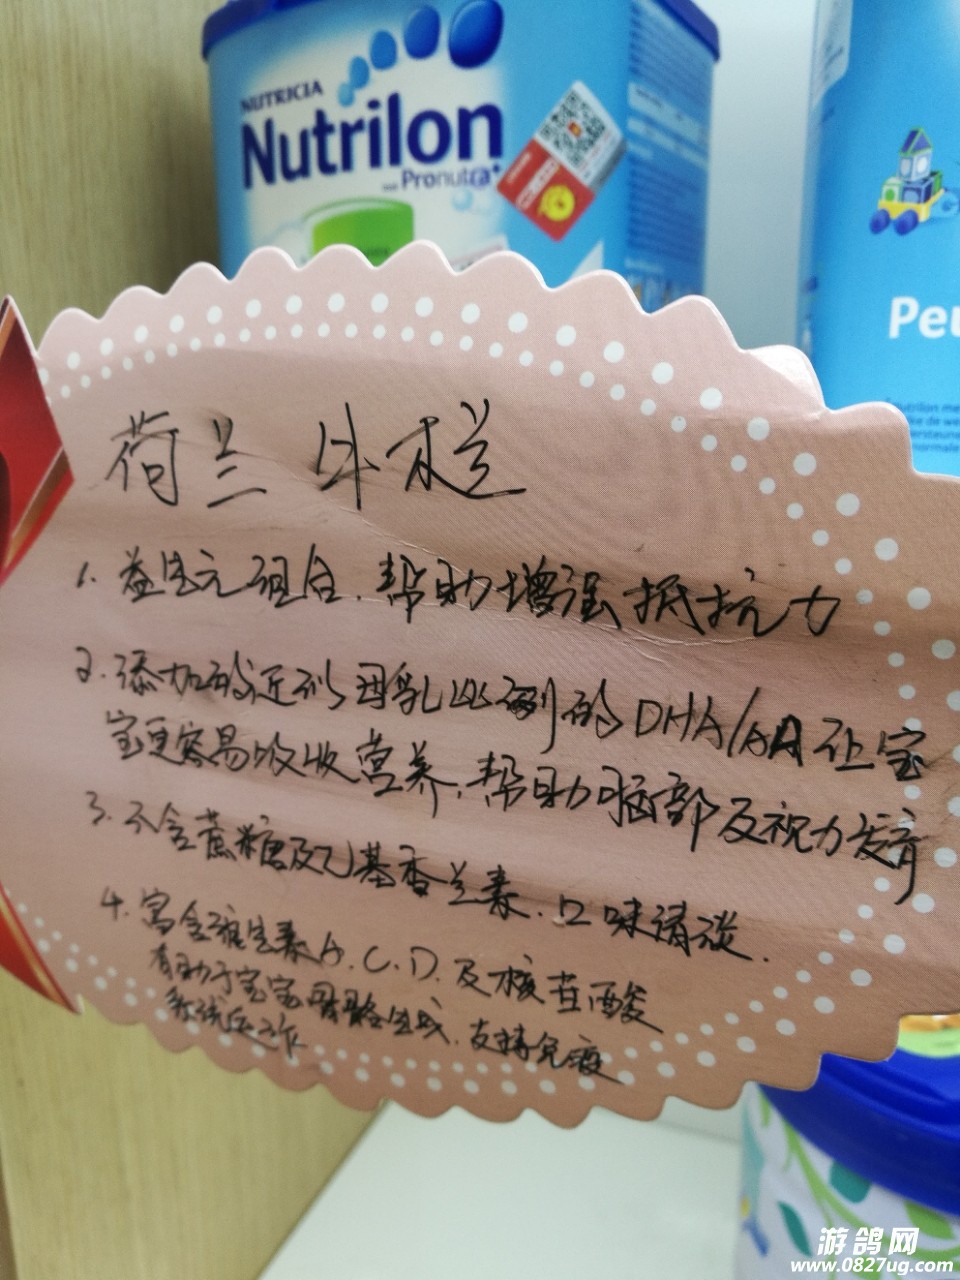 NUTRICIA
Nutrilon
Pronutra
Peu
荷兰 牛栏
1. 益生元组合.帮助增强抵抗力
2. 添加的近似母乳比例的DHA/AA让宝
宝更容易吸收营养,帮助脑部及视力发育
3. 不含蔗糖及乙基香兰素.口味清淡.
4. 富含维生素A.C.D.及核苷酸
有助于宝宝骨骼生成.支持免疫
系统运作
游鸽网
www.0827ug.com